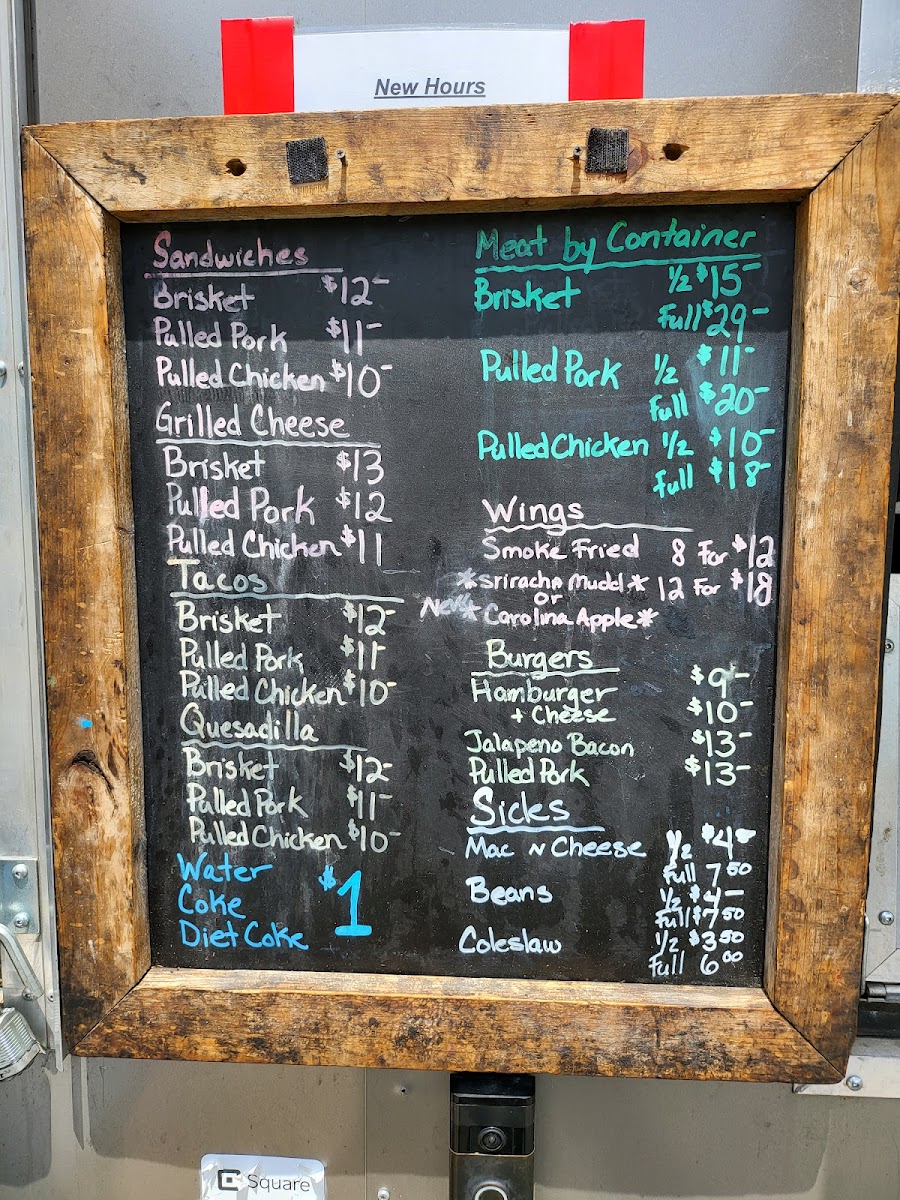 New Hours
Sandwiches
Brisket $12-
Pulled Pork $11-
Pulled Chicken $10-
Grilled Cheese
Brisket $13
Pulled Pork $12
Pulled Chicken $11
Tacos
Brisket $12-
Pulled Pork $11-
Pulled Chicken $10-
Quesadilla
Brisket $12-
Pulled Pork $11-
Pulled Chicken $10-
Water
Coke $1
Diet Coke
Meat by Container
Brisket 1/2 $15-
Full $29-
Pulled Pork 1/2 $11-
Full $20-
Pulled Chicken 1/2 $10-
Full $18-
Wings
Smoke Fried 8 For $12
*sriracha mudd* 12 For $18
or
New * Carolina Apple*
Burgers
Hamburger $9-
+ Cheese $10-
Jalapeno Bacon $13-
Pulled Pork $13-
Sicks
Mac n Cheese 1/2 $4-
Full 7 50
Beans 1/2 $4-
Full $7 50
Coleslaw 1/2 $3 50
Full 6 00
Square